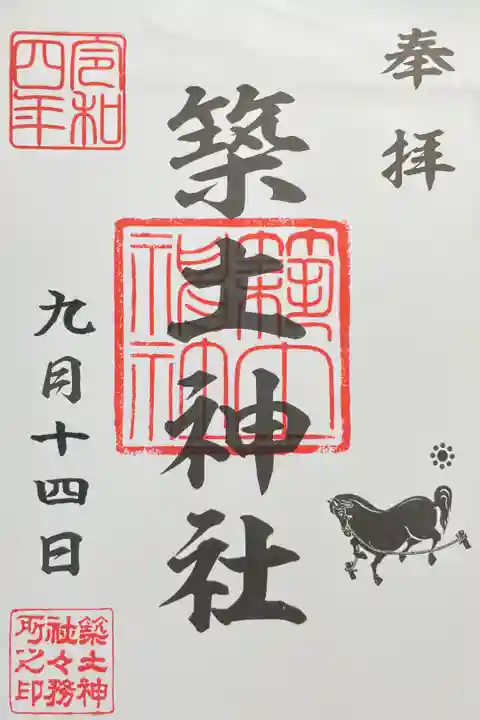 奉拝
築土神社
築土神社
令和四年
九月十四日
築土神社々務所之印